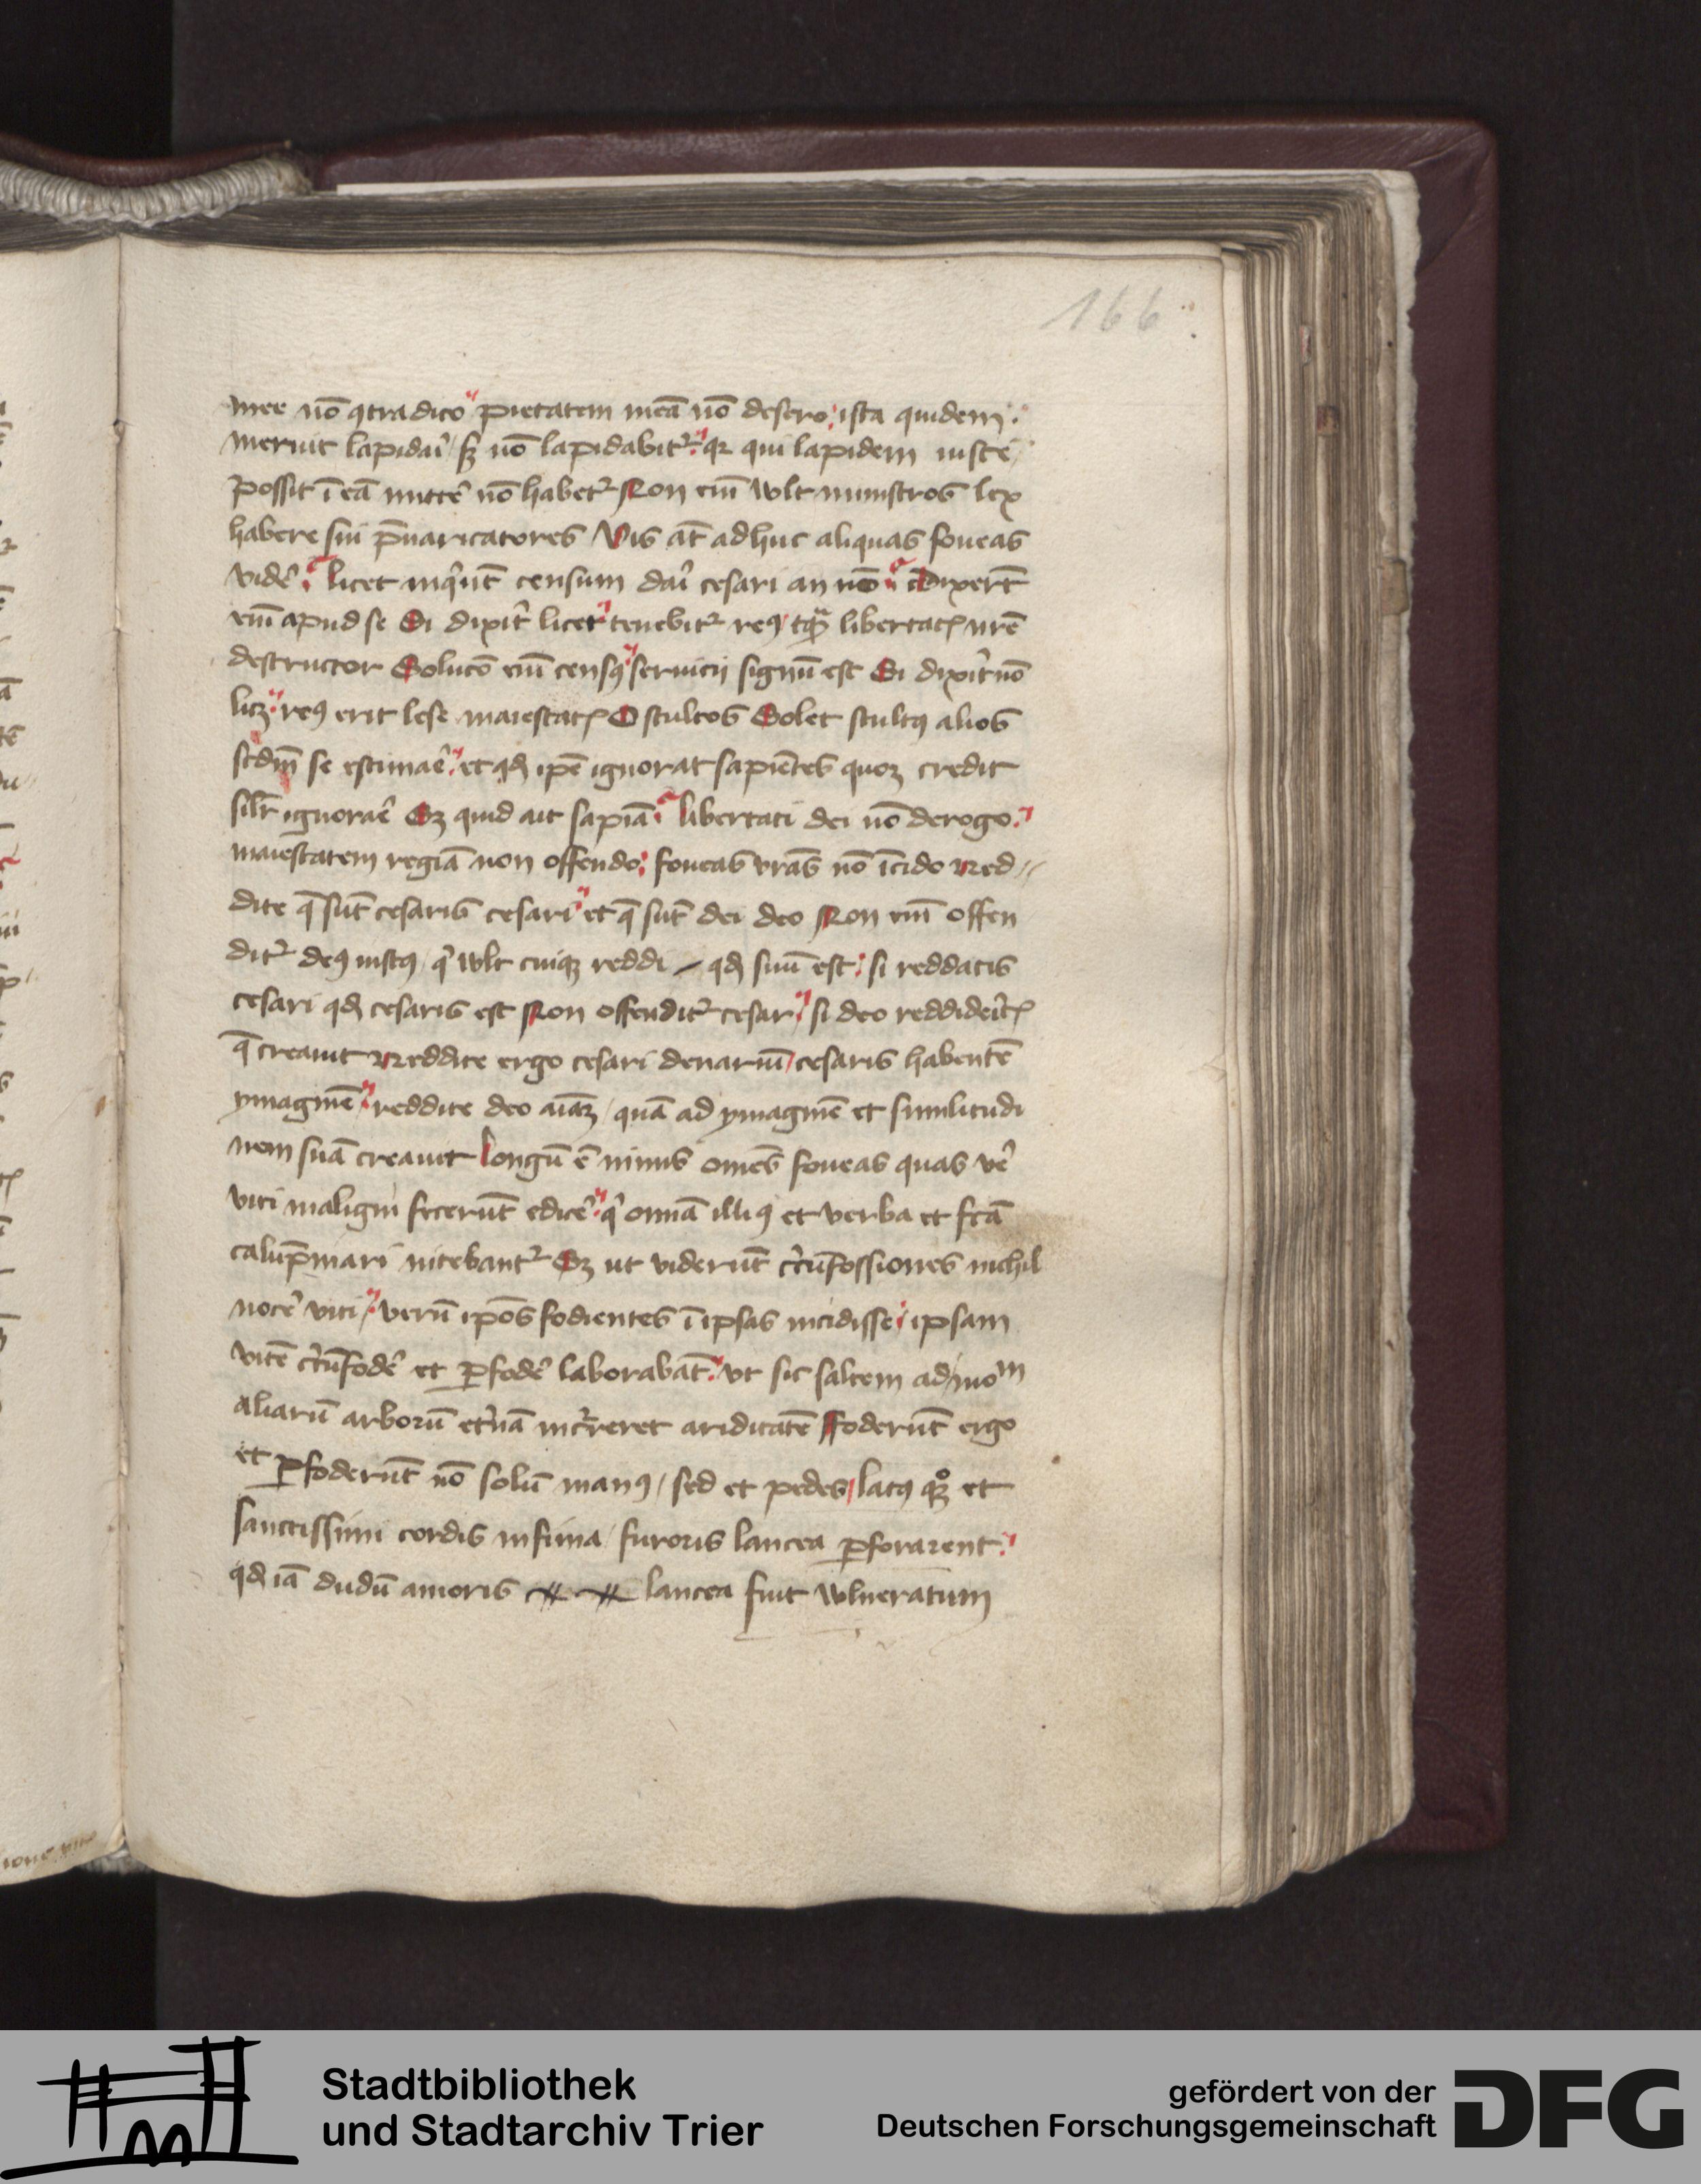 166
mee nō ꝯtradico pietatem meā nō desero, ista quidem
meruit lapidaꝛi / sꝫ nō lapidabitᷣ: qꝛ qui lapidem iuste
possit ī eā mittē nō habetᷣ Non eīm wlt ministros lex
habere sui p̄uaricatores Vis āt adhuc aliquas foueas
vidē licet inqͥūt censum daꝛi cesari an nō Dixerūt
eīm apud se Si dixit licet tenebitᷣ reꝰ tqͣꝫ libertatꝭ nr̄e
destructor Soluco eīm censꝰ seruicij signū est Si dixit nō
licꝫ reꝰ erit lese maiestatꝭ O stultos Solet stultꝰ alios
scdm̄ se estimaē: et qd ip̄e ignorat sapiētes quoꝫ credit
silr̄ ignoraē Sꝫ quid ait sapiā libertati dei nō derogo:
maiestatem regiā non offendo; foueas vr̄as nō īcido Red
dite q̄ sūt cesaris cesari et q̄ sūt dei deo Non eīm offen
ditᷣ deꝰ iustꝰ qͥ wlt cuiqꝫ reddi qd suū est: si reddatis
cesari qd cesaris est Non offenditᷣ cesar si deo reddideītꝭ
q̄ creauit Reddite ergo cesari denariū cesaris habentē
ymaginē: reddite deo aīaꝫ / quā ad ymaginē et similitudi
nem suā creauit Longū ē nimis om̄es foueas quas vē
viti maligni fecerūt edicē: qͥ om̄ia illiꝰ et verba et fc̄a
calup̄niari nitebantᷣ Sꝫ ut viderūt cͥcūfossiones nichil
nocē viti: verū ip̄os fodientes ī ipsas incidisse ipsam
vitē cͥcūfodē et ꝑfodē laborabāt: vt sic saltem ad moᵐ
aliarū arborū et̄nā incͥreret ariditatē Foderūt ergo
et ꝑfoderūt nō solū manꝰ / sed et pedes latꝰ qꝫ et
sanctissimi cordis infima / furoris lancea ꝑforarent:
qd iā dudū amoris lancea fuit wlneratum
Stadtbibliothek
und Stadtarchiv Trier
gefördert von der
Deutschen Forschungsgemeinschaft
DFG